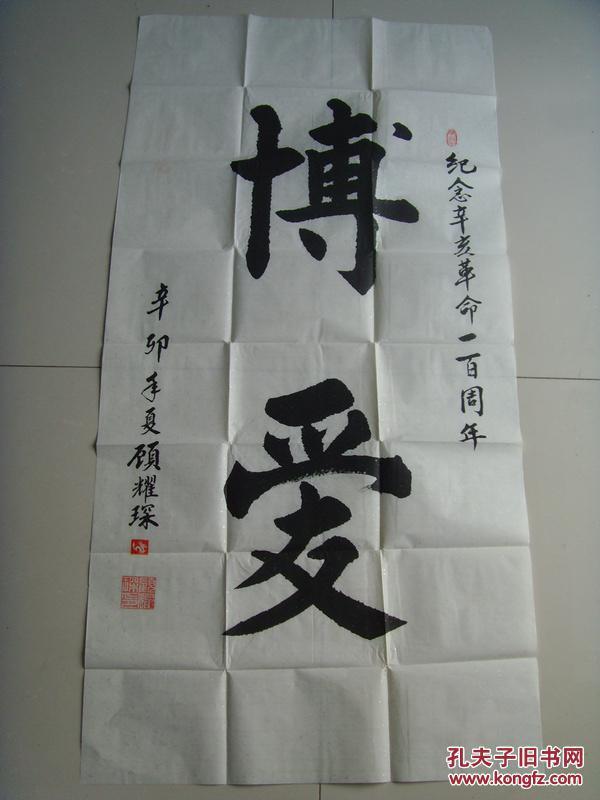 纪念辛亥革命一百周年
博爱
辛卯年夏顾耀琛
孔夫子旧书网
www.kongfz.com